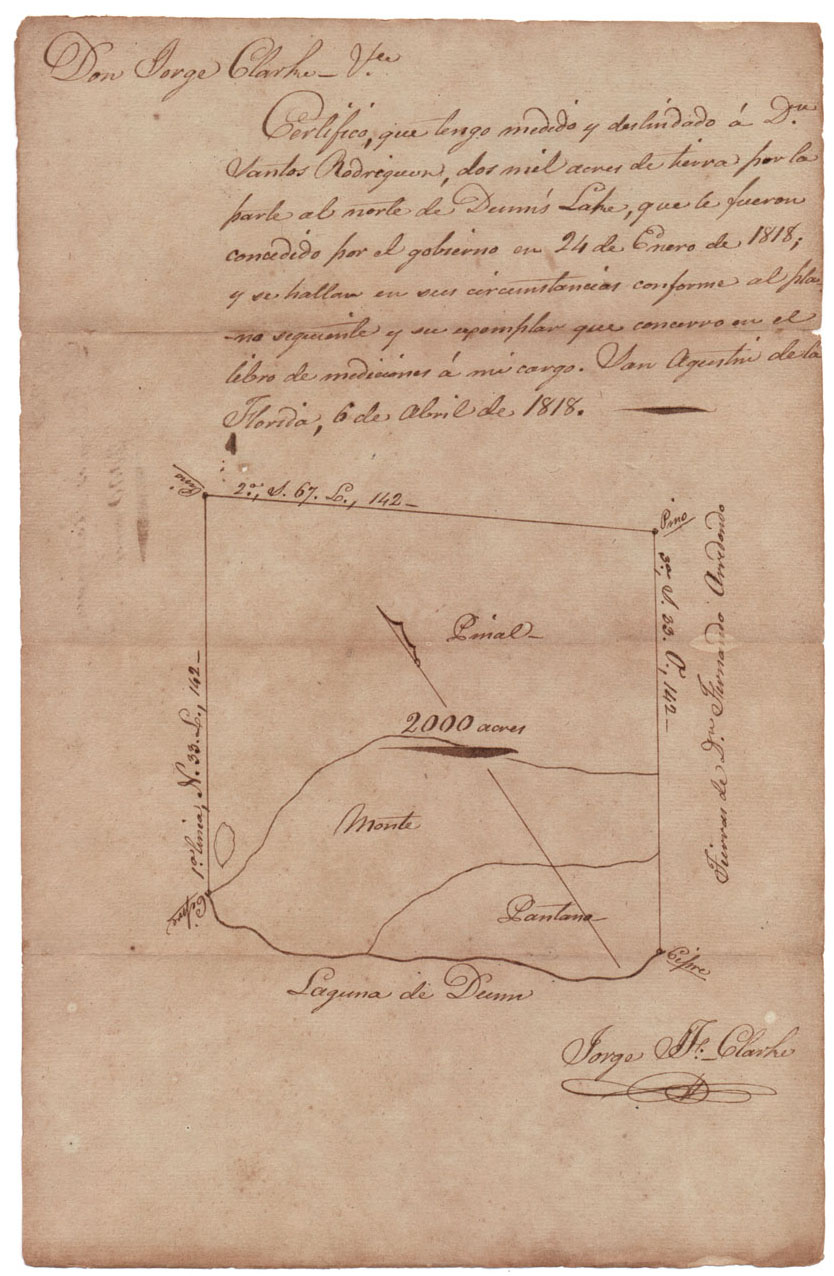 Don Jorge Clarke – Vᵃ ᵉᵗᶜ
Certifico, que tengo medido y deslindado á Dⁿ
Santos Rodriguez, dos mil acres de tierra por la
parte al norte de Dunn's Lake, que le fueron
concedido por el gobierno en 24 de Enero de 1818;
y se hallan en sus circunstancias conforme al pla-
-no seguiente y su exemplar que concerro en el
libro de mediciones á mi cargo. San Agustin de la
Florida, 6 de Abril de 1818.
Pino
2ᵃ, S. 67. L., 142–
Pino
3ᵃ, S. 33. O., 142–
Tierras de Dⁿ Fernando Arredondo
Pinal–
2000 acres
1ᵃ linia, N. 33. L., 142–
Monte
Pantano
Cipre
Cipre
Laguna de Dunn
Jorge J. F. Clarke